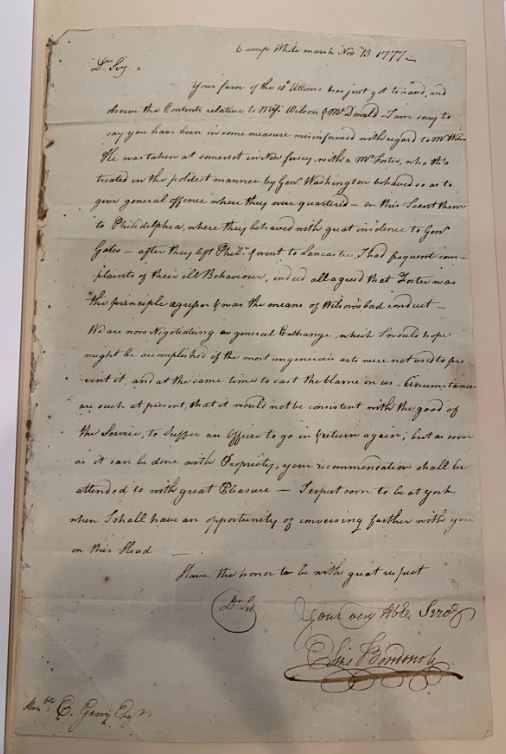 Camp White marsh Nov. 13. 1777
Dr. Sir
Your favor of the 10th Ultimo has just got to hand, and
observe the Contents relative to Messrs Wilson & Mc Donald – I am sorry to
say you have been in some measure misinformed with regard to Mr Wilson
He was taken at somerset in New Jersey, with a Mr Foster, who tho
treated in the politest manner by Genl Washington behaved so as to
give general offence where they were quartered – on this I sent them
to Philidelphia, where they behaved with great insolence to Genl
Gates – after they left Phila & went to Lancaster I had frequent com-
plaints of their ill Behaviour, indeed all agreed that Foster was
the principle agressor & was the means of Wilsons bad conduct –
We are now Negotiating a general Exchange, which I would hope
might be accomplished if the most ungenerous arts were not used to pre-
vent it, and at the same time to cast the blame on us. Circumstances
are such at present, that it would not be consistent with the good of
the Service, to suffer an Officer to go in & return again; but as soon
as it can be done with Propriety, your recommendation shall be
attended to with great Pleasure – I expect soon to be at york
when I shall have an opportunity of conversing farther with you
on this Head –
Have the honor to be with great respect
Dr Sir
Your very Hble Servt
Elias Boudinot
Honble E. Gerry Esqr